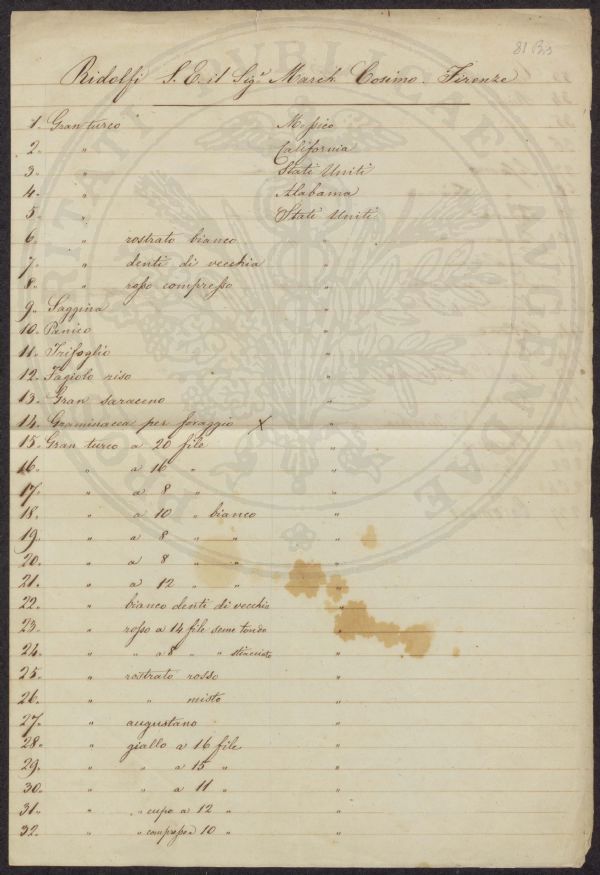 81 Bis
Ridolfi S. E. il Sigr March. Cosimo. Firenze
1. Gran turco Messico
2. " California
3. " Stati Uniti
4. " Alabama
5. " Stati Uniti
6. " rostrato bianco "
7. " denti di vecchia "
8. " rosso compresso "
9. Saggina "
10. Panico "
11. Trifoglio "
12. Fagiolo riso "
13. Gran saraceno "
14. Graminacea per foraggio X "
15. Gran turco a 20 file "
16. " a 16 " "
17. " a 8 " "
18. " a 10 " bianco "
19. " a 8 " " "
20. " a 8 " " "
21. " a 12 " " "
22. " bianco denti di vecchia "
23. " rosso a 14 file seme tondo "
24. " " a 8 " " stiacciato "
25. " rostrato rosso "
26. " " misto "
27. " augustano "
28. " giallo a 16 file "
29. " " a 15 " "
30. " " a 11 " "
31. " " cupo a 12 " "
32. " " compresso a 10 " "
PROSPERITATI PUBLICAE AUGENDAE